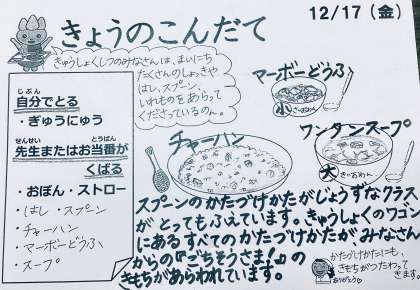 きょうのこんだて
12/17（金）
きゅうしょくしつのみなさんは、まいにち
たくさんのしょっきや
はし、スプーン、
いれものをあらって
くださっているのん。
じぶん
自分でとる
・ぎゅうにゅう
せんせい とうばん
先生またはお当番が
くばる
・おぼん・ストロー
・はし・スプーン
・チャーハン
・マーボーどうふ
・スープ
マーボーどうふ
小
きいおわん
ワンタンスープ
大
きいおわん
チャーハン
スプーンのかたづけかたがじょうずなクラス
が とってもふえています。きゅうしょくのワゴン
にあるすべてのかたづけかたが、みなさん
からの『ごちそうさま!』の
きもちがあらわれています。
かたづけかたにも、
きもちがつたわって
きます。
ありがとう